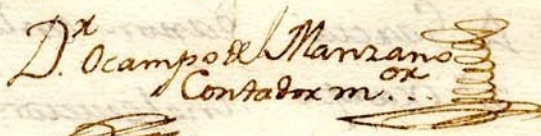 D.r Ocampo del Manzano
Contador m.or